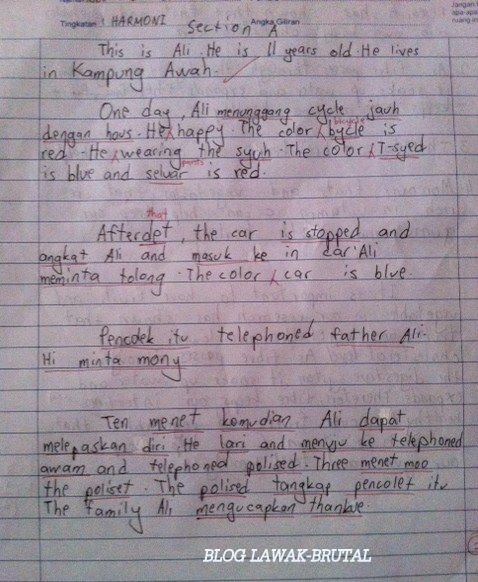 Tingkatan : HARMONI
Angka Giliran
Section A
This is Ali. He is 11 years old. He lives
in Kampung Awah.
One day, Ali menunggang cycle jauh
bicycle
dengan hous. He happy. The color bycle is
red. He wearing the syuh. The color T-syed
pants
is blue and seluar is red.
that
Afterdet, the car is stopped and
angkat Ali and masuk ke in car. Ali
meminta tolong. The color car is blue.
Penculek itu telephoned father Ali.
Hi minta mony
Ten menet komudian Ali dapat
melepaskan diri. He lari and menuju ke telephoned
awam and telephoned polised. Three menet moo
the poliset. The polised tangkap pencolet itu
The family Ali mengucapkan thankue.
BLOG LAWAK-BRUTAL